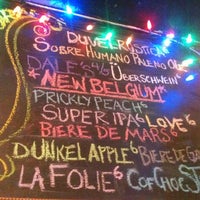 DUVEL RUSTICA
SOBREHUMANO PALENO OLE
DALE'S 4/6 ÜBERSCHWEIN
*NEW BELGIUM*
PRICKLY PEACH 6
SUPER IPA 6 LOVE 6
BIERE DE MARS 6
DUNKEL APPLE 6 BIERE DE GA
LA FOLIE 6 COF CHOC ST